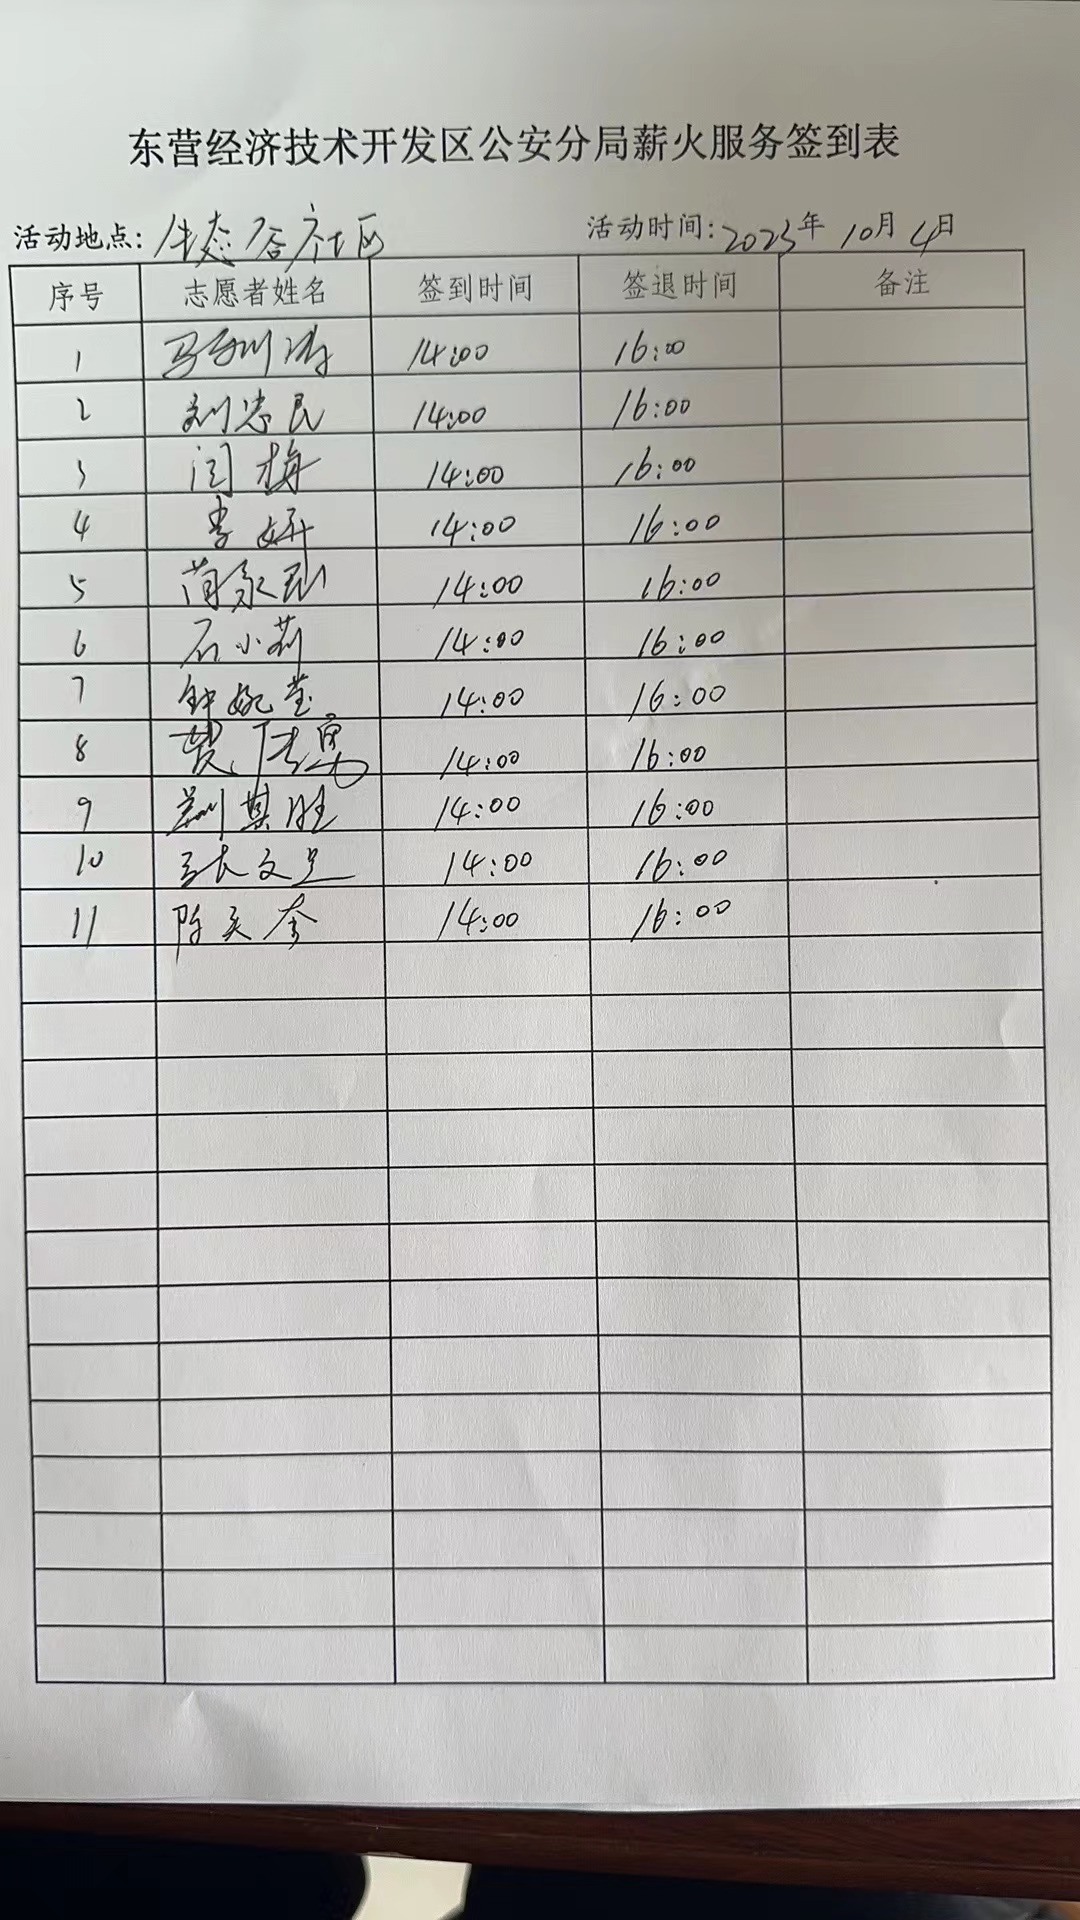 东营经济技术开发区公安分局薪火服务签到表
活动地点：生态谷社区 活动时间：2023年10月4日
序号 志愿者姓名 签到时间 签退时间 备注
1 14:00 16:00
2 刘忠民 14:00 16:00
3 闫梅 14:00 16:00
4 李妍 14:00 16:00
5 14:00 16:00
6 石小莉 14:00 16:00
7 钟婉莹 14:00 16:00
8 14:00 16:00
9 14:00 16:00
10 张文 14:00 16:00
11 陈 14:00 16:00